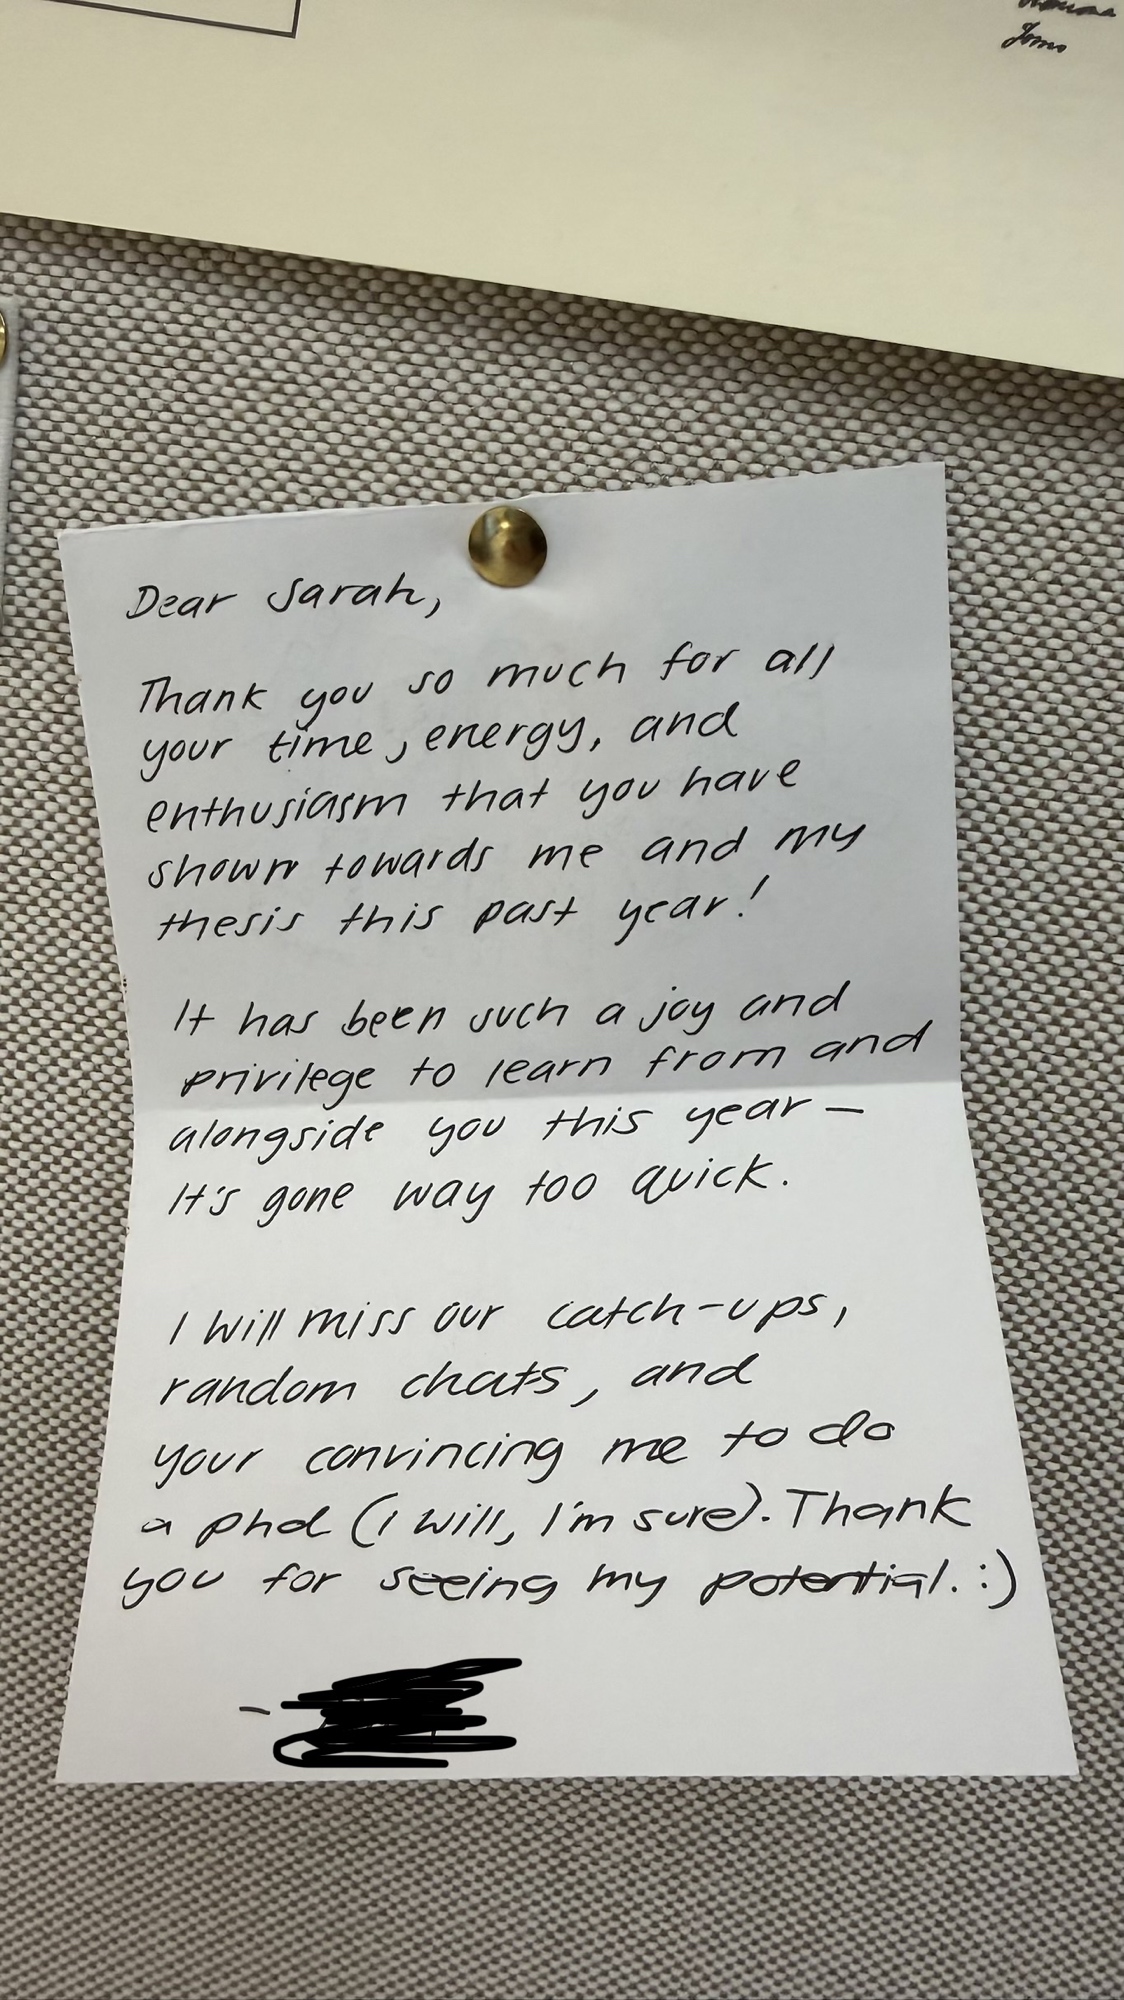 Dear Sarah,
Thank you so much for all
your time, energy, and
enthusiasm that you have
shown towards me and my
thesis this past year!
It has been such a joy and
privilege to learn from and
alongside you this year –
It's gone way too quick.
I will miss our catch-ups,
random chats, and
your convincing me to do
a phd (I will, I'm sure). Thank
you for seeing my potential. :)
-